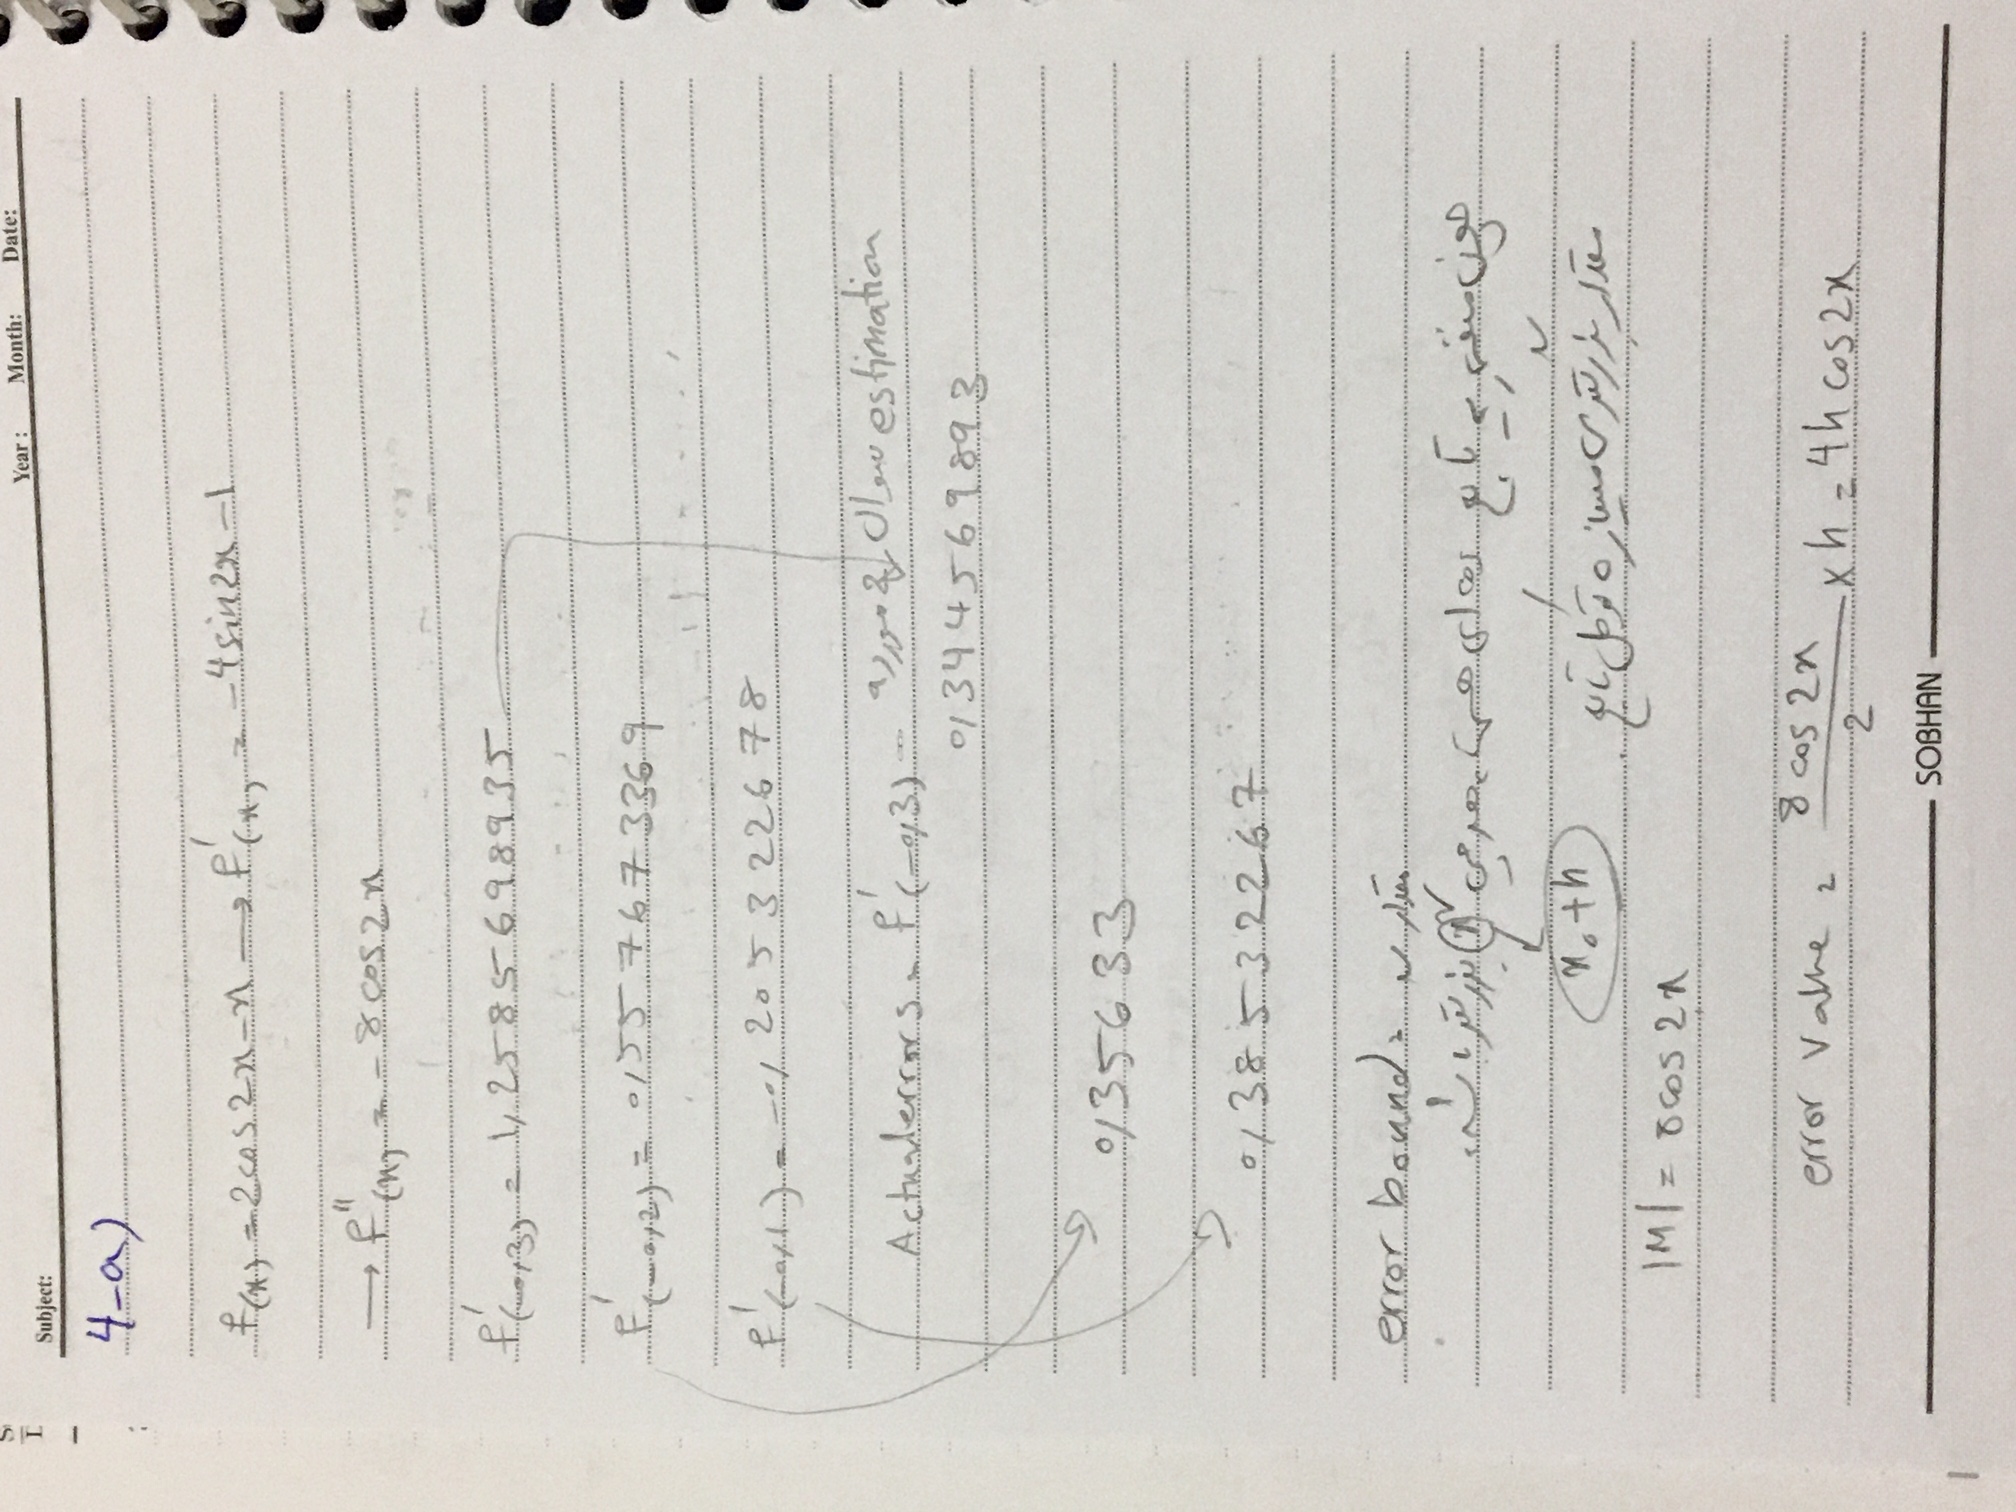 Year : Month: Date:
Subject:
4-a)
f(x) = 2cos2x - x → f'(x) = -4sin2x - 1
→ f''(x) = -8cos2x
f'(-0,3) = 1,2585698935
f'(-0,2) = 0,557673369
f'(-0,1) = -0,2053226778
Actual errors = f'(-0,3) - estimation سوال
0,3444569893
0,35633
0,38532267
error bound = مقدار
چون منفی یه تابع cos ای هست، هر چی x بزرگتر باشه،
x₀+h
مقدار بزرگتری میسازه تو کل تابع.
|M| = 8cos2x
error value = 8cos2x / 2 × h = 4h cos2x
SOBHAN